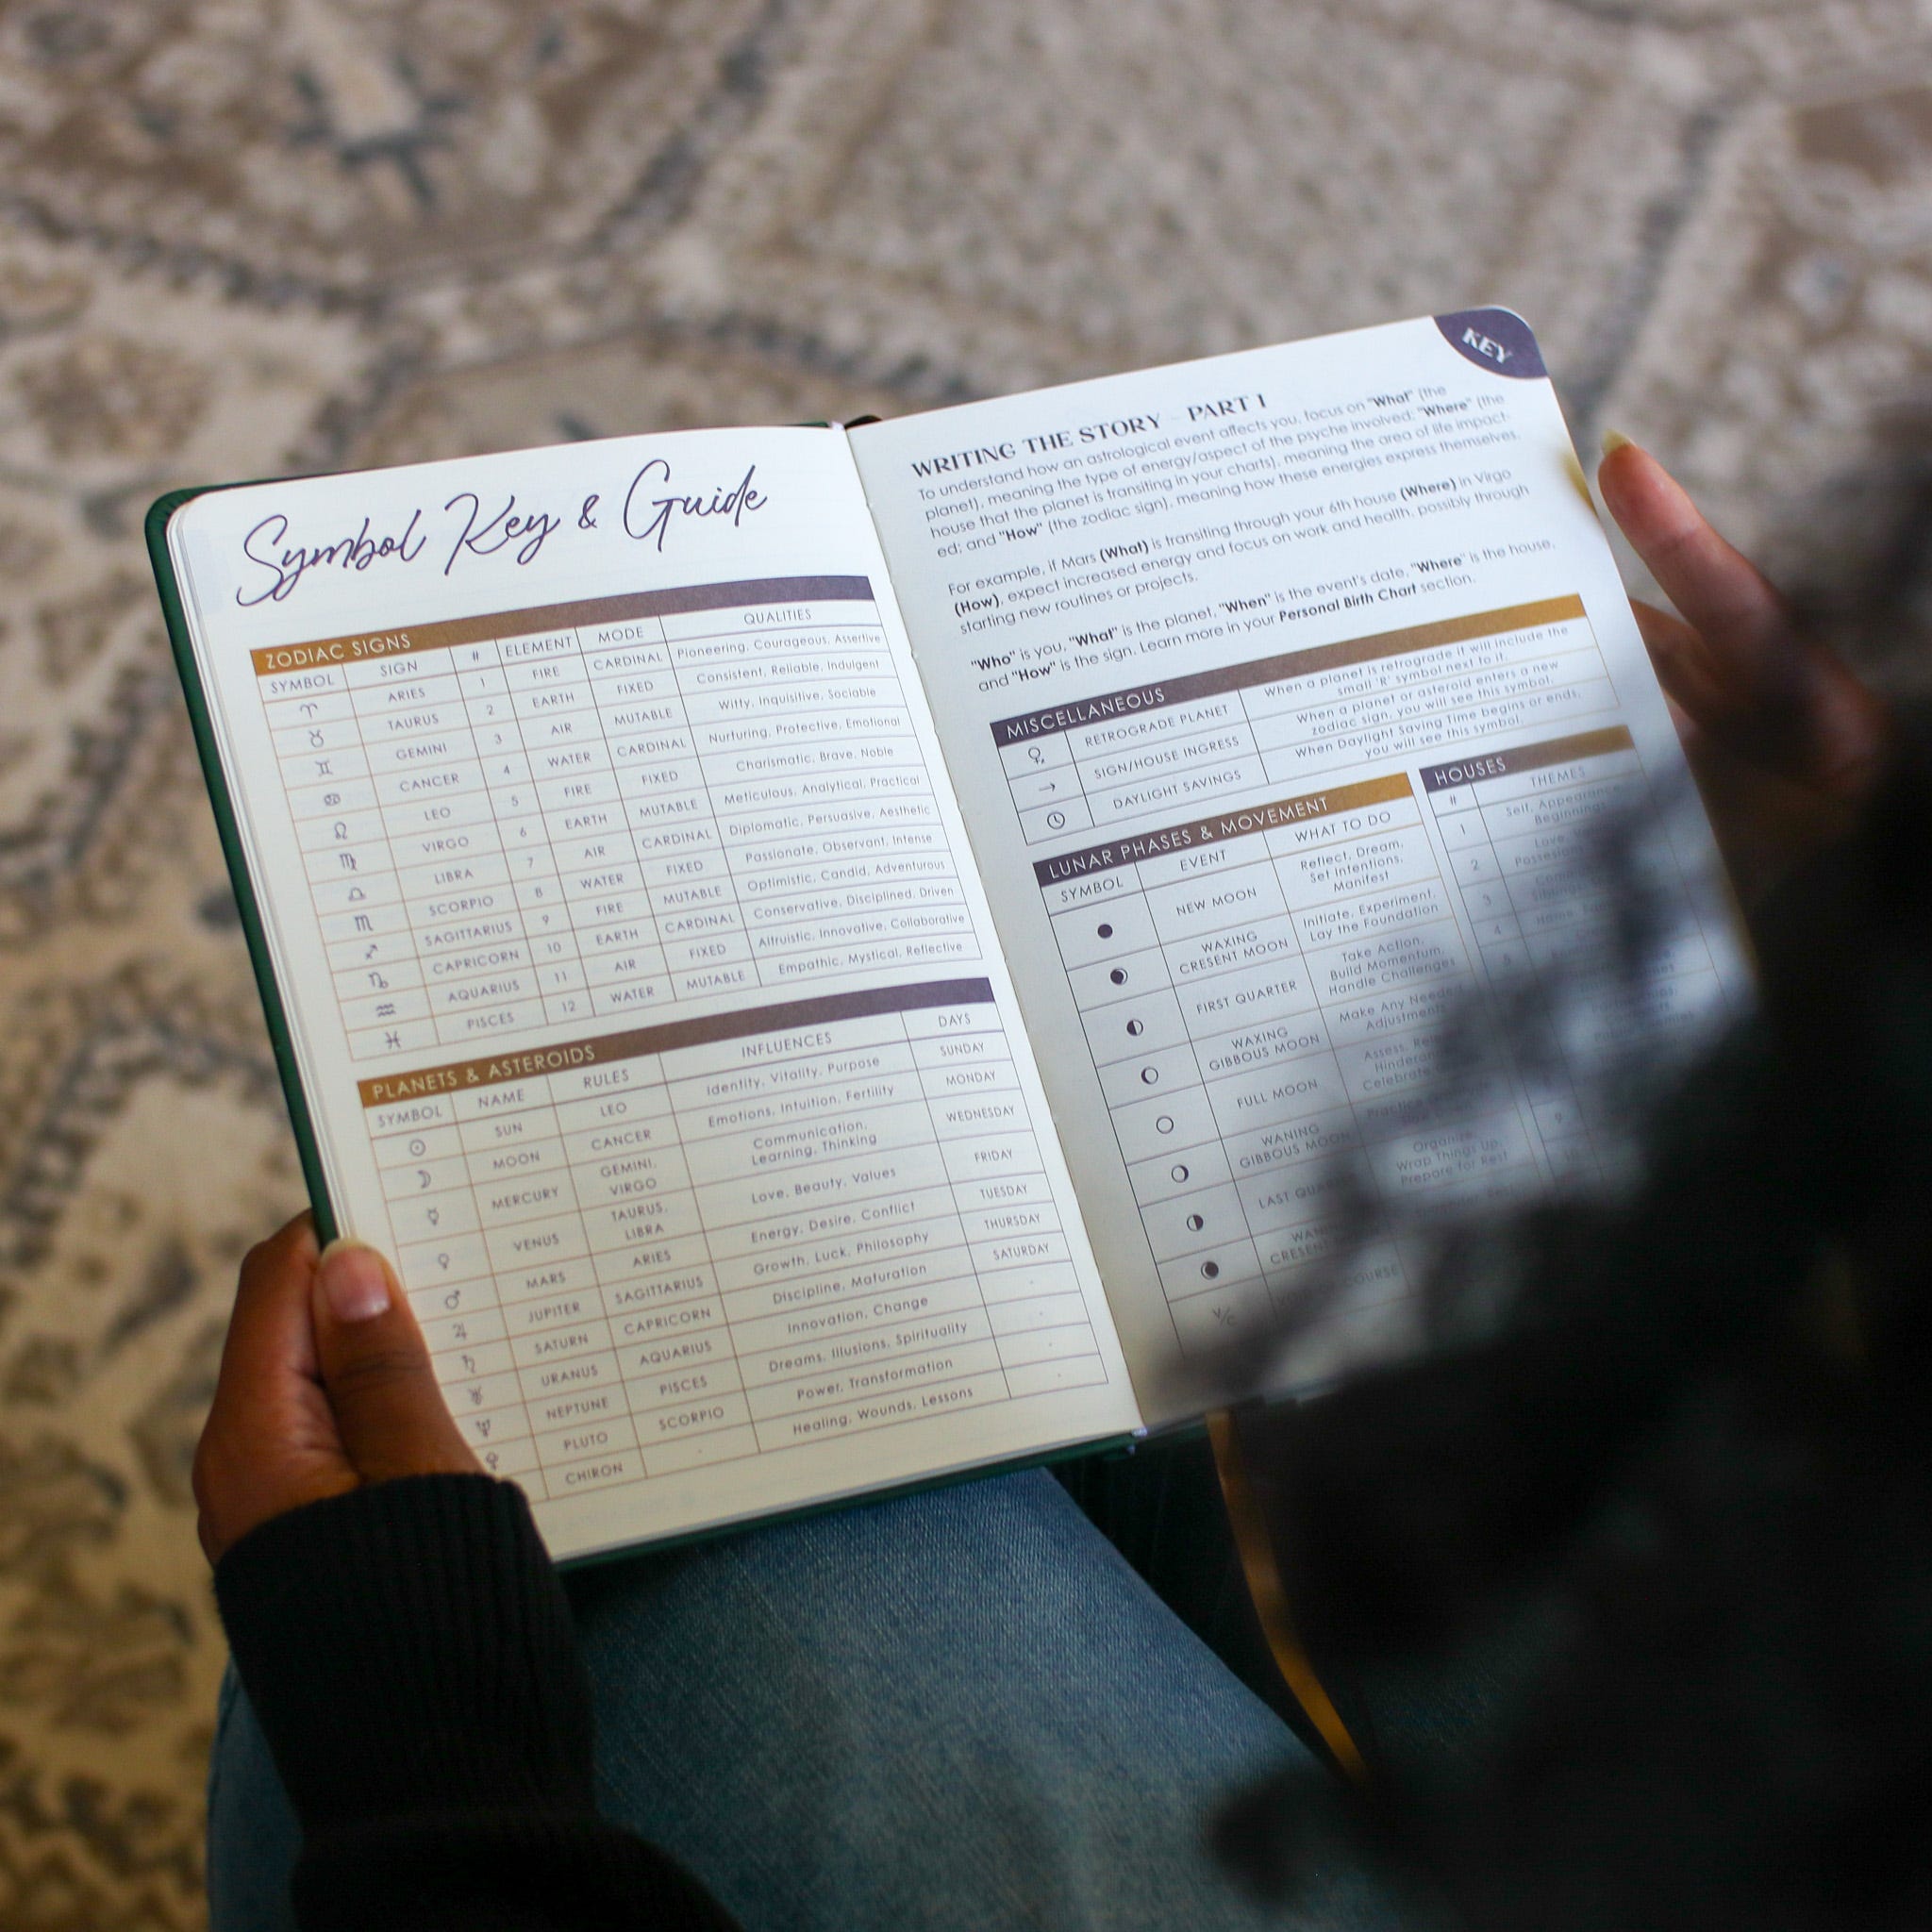 Symbol Key & Guide
ZODIAC SIGNS
SYMBOL SIGN # ELEMENT MODE QUALITIES
♈ ARIES 1 FIRE CARDINAL Pioneering, Courageous, Assertive
♉ TAURUS 2 EARTH FIXED Consistent, Reliable, Indulgent
♊ GEMINI 3 AIR MUTABLE Witty, Inquisitive, Sociable
♋ CANCER 4 WATER CARDINAL Nurturing, Protective, Emotional
♌ LEO 5 FIRE FIXED Charismatic, Brave, Noble
♍ VIRGO 6 EARTH MUTABLE Meticulous, Analytical, Practical
♎ LIBRA 7 AIR CARDINAL Diplomatic, Persuasive, Aesthetic
♏ SCORPIO 8 WATER FIXED Passionate, Observant, Intense
♐ SAGITTARIUS 9 FIRE MUTABLE Optimistic, Candid, Adventurous
♑ CAPRICORN 10 EARTH CARDINAL Conservative, Disciplined, Driven
♒ AQUARIUS 11 AIR FIXED Altruistic, Innovative, Collaborative
♓ PISCES 12 WATER MUTABLE Empathic, Mystical, Reflective
PLANETS & ASTEROIDS
SYMBOL NAME RULES INFLUENCES DAYS
☉ SUN LEO Identity, Vitality, Purpose SUNDAY
☽ MOON CANCER Emotions, Intuition, Fertility MONDAY
☿ MERCURY GEMINI, VIRGO Communication, Learning, Thinking WEDNESDAY
♀ VENUS TAURUS, LIBRA Love, Beauty, Values FRIDAY
♂ MARS ARIES Energy, Desire, Conflict TUESDAY
♃ JUPITER SAGITTARIUS Growth, Luck, Philosophy THURSDAY
♄ SATURN CAPRICORN Discipline, Maturation SATURDAY
♅ URANUS AQUARIUS Innovation, Change
♆ NEPTUNE PISCES Dreams, Illusions, Spirituality
PLUTO SCORPIO Power, Transformation
CHIRON Healing, Wounds, Lessons
KEY
WRITING THE STORY - PART 1
To understand how an astrological event affects you, focus on "What" (the
planet), meaning the type of energy/aspect of the psyche involved; "Where" (the
house that the planet is transiting in your charts), meaning the area of life impact-
ed; and "How" (the zodiac sign), meaning how these energies express themselves.
For example, if Mars (What) is transiting through your 6th house (Where) in Virgo
(How), expect increased energy and focus on work and health, possibly through
starting new routines or projects.
"Who" is you, "What" is the planet, "When" is the event's date, "Where" is the house,
and "How" is the sign. Learn more in your Personal Birth Chart section.
MISCELLANEOUS
RETROGRADE PLANET When a planet is retrograde it will include the
small 'R' symbol next to it.
→ SIGN/HOUSE INGRESS When a planet or asteroid enters a new
zodiac sign, you will see this symbol.
DAYLIGHT SAVINGS When Daylight Saving Time begins or ends,
you will see this symbol.
LUNAR PHASES & MOVEMENT
SYMBOL EVENT WHAT TO DO
NEW MOON Reflect, Dream,
Set Intentions,
Manifest
WAXING CRESENT MOON Initiate, Experiment,
Lay the Foundation
FIRST QUARTER Take Action,
Build Momentum,
Handle Challenges
WAXING GIBBOUS MOON Make Any Needed
Adjustments
FULL MOON Assess,
Celebrate
WANING GIBBOUS MOON
LAST Organize,
Wrap Things Up,
Prepare for Rest
CRESENT
V/C COURSE
HOUSES
# THEMES
1 Self, Appearance,
Beginnings
2 Love
3
4 Home
5
9